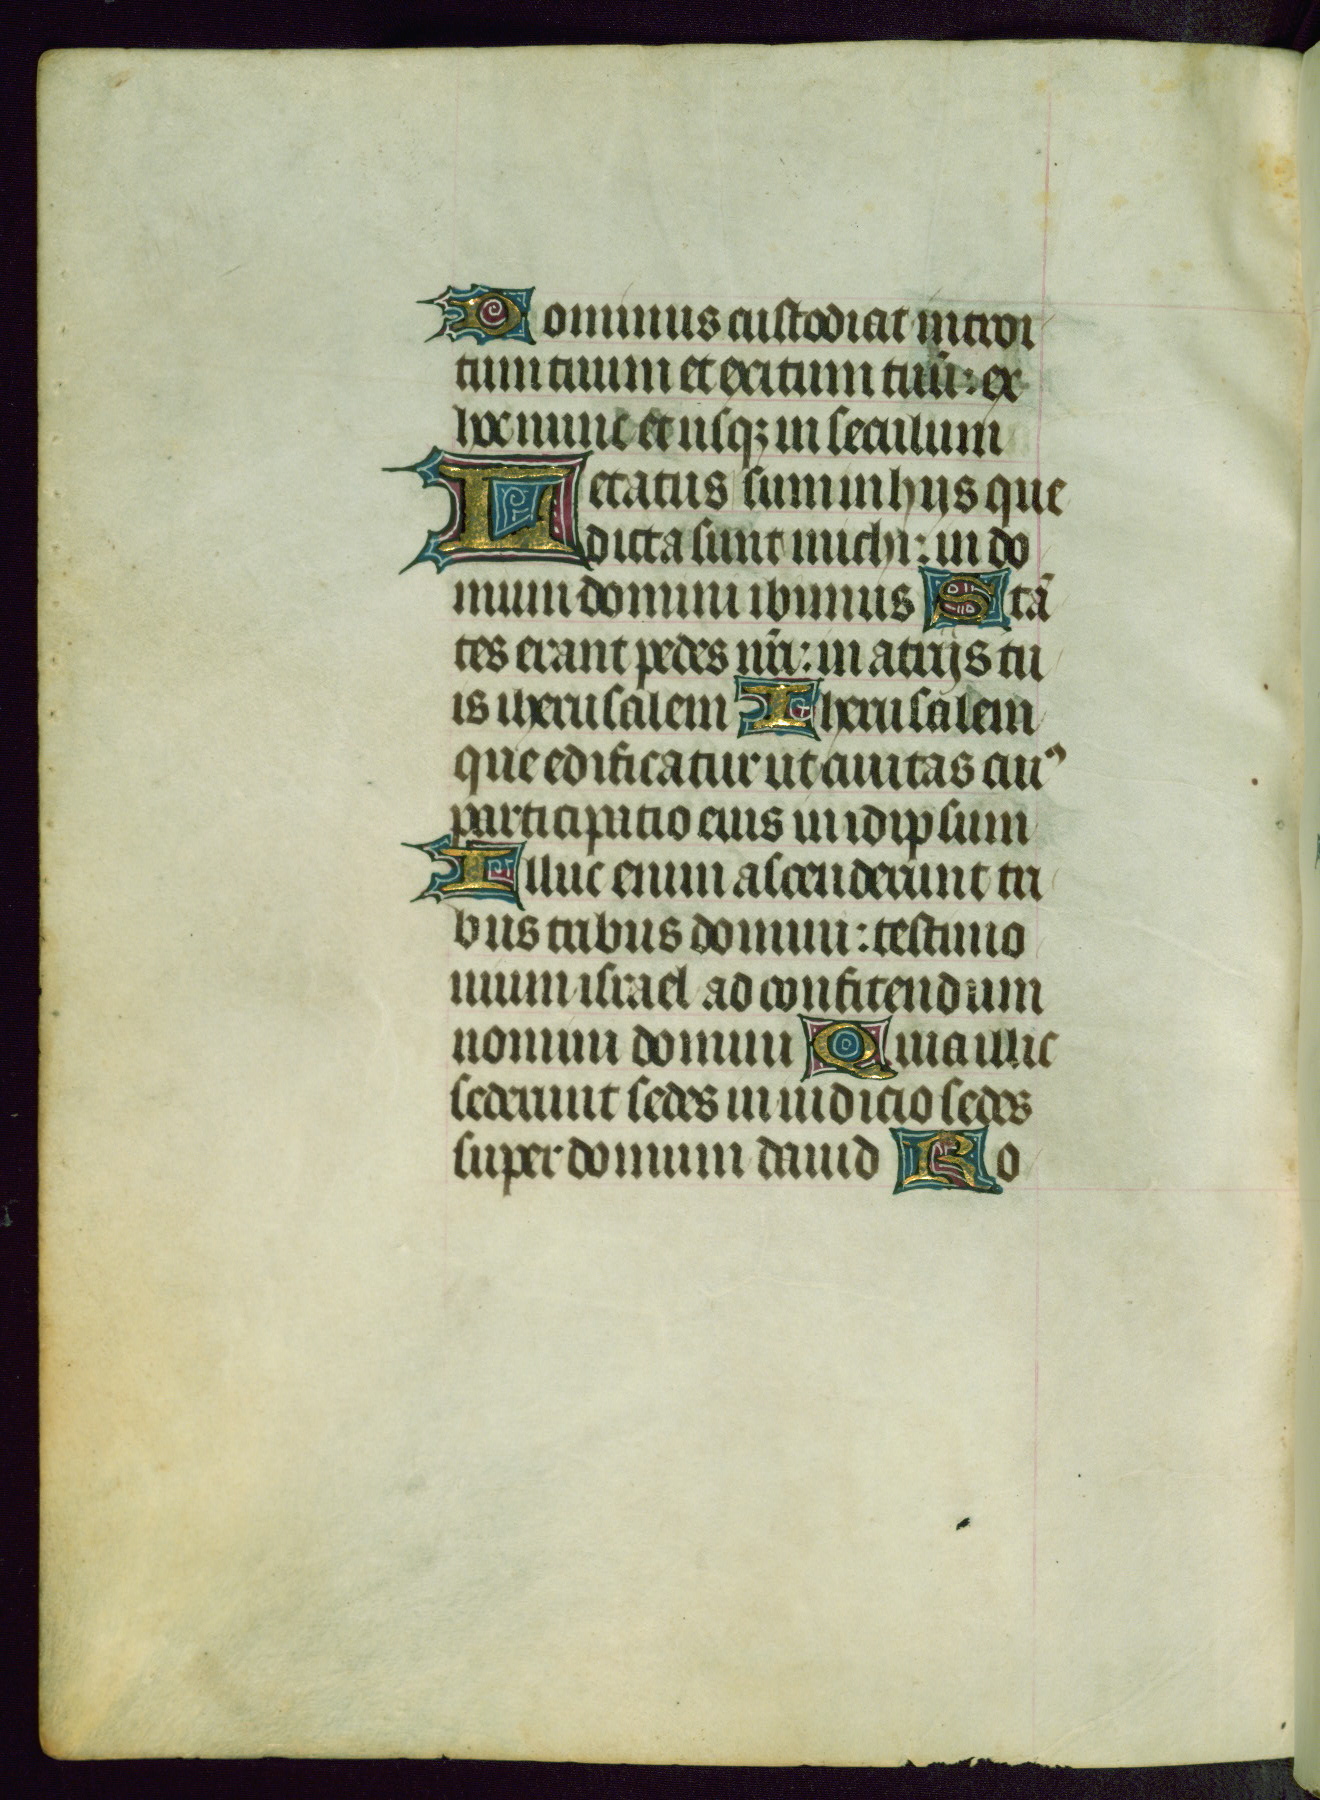 Dominus custodiat introi
tum tuum et exitum tuū: ex
hoc nunc et usqꝫ in seculum
Letatus sum in hijs que
dicta sunt michi: in do
mum domini ibimus Stā
tes erant pedes nr̄i: in atrijs tu
is iherusalem Iherusalem
que edificatur ut ciuitas cuiꝰ
participatio eius in idipsum
Illuc enim ascenderunt tri
bus tribus domini: testimo
nium israel ad confitendum
nomini domini Quia illic
sederunt sedes in iudicio sedes
super domum dauid Ro